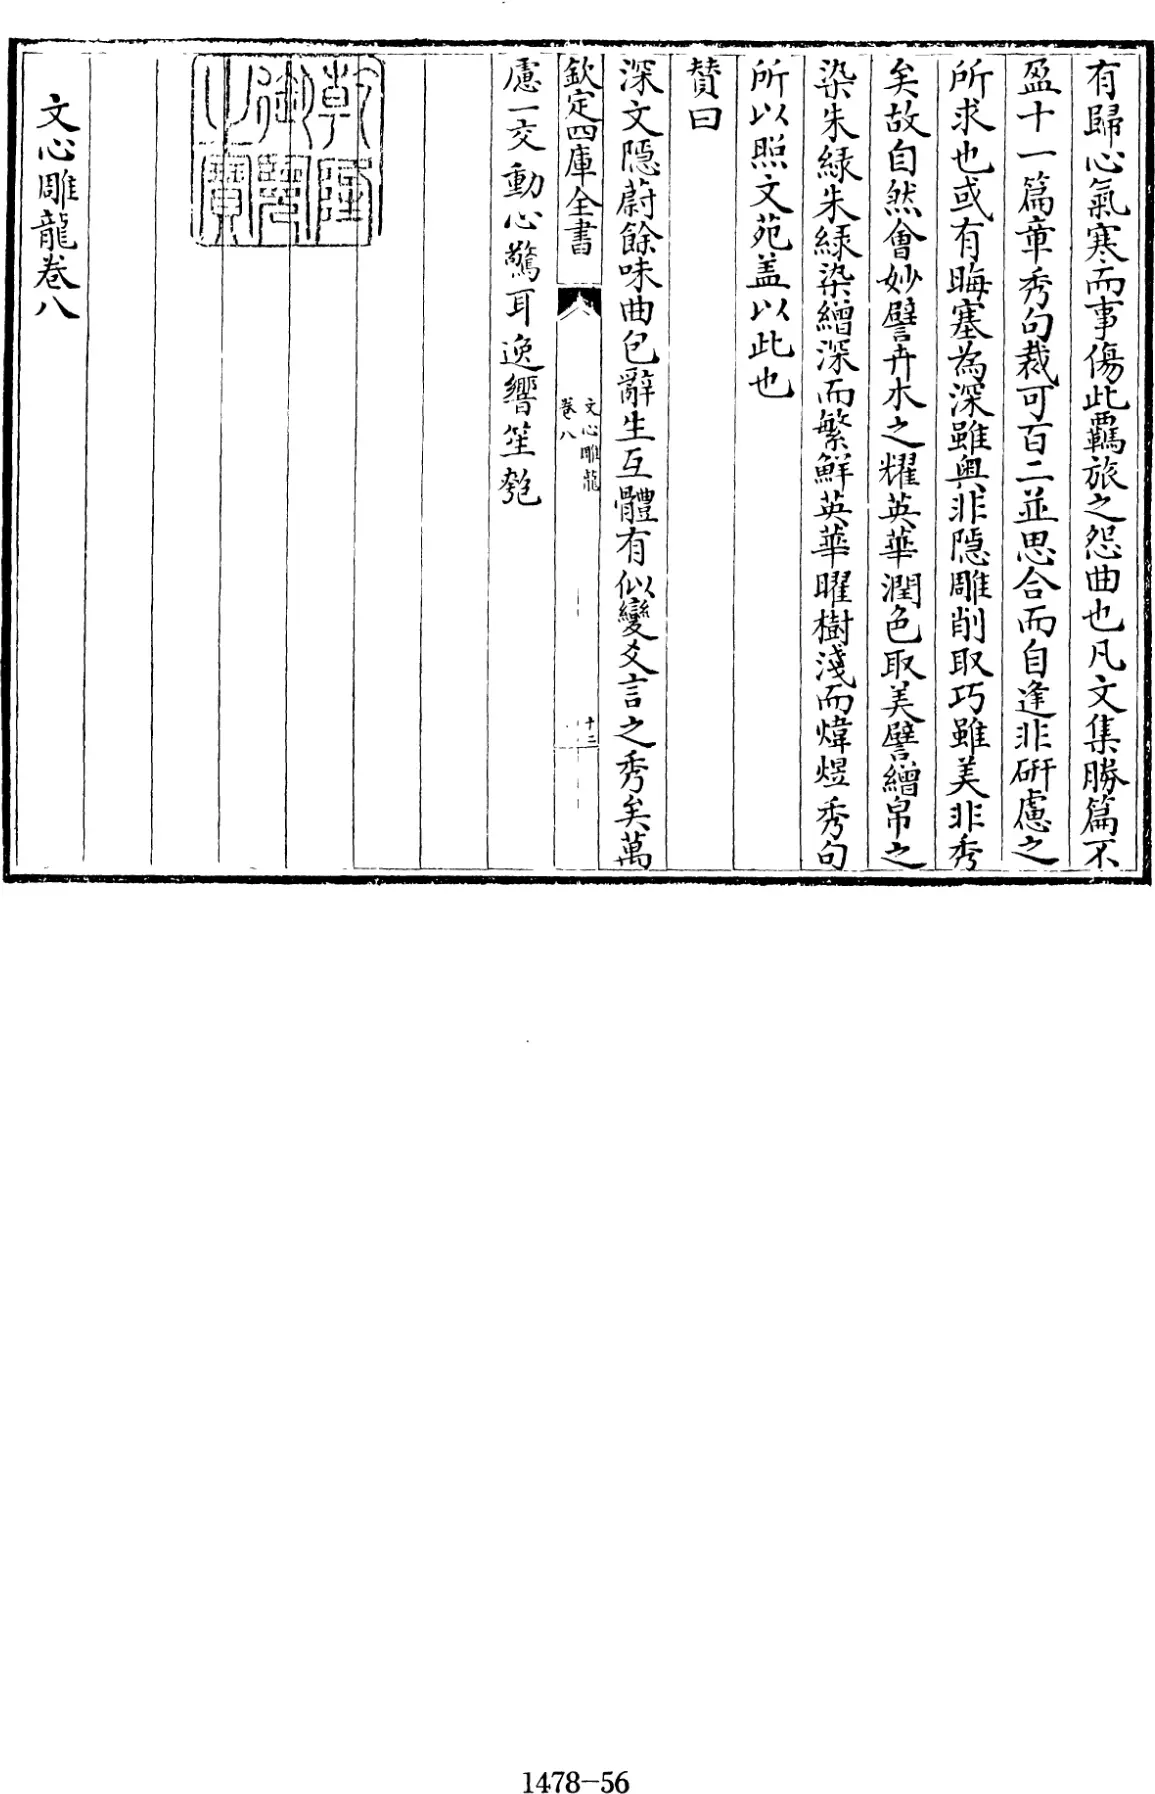 有歸心氣寒而事傷此羈旅之怨曲也凡文集勝篇不
盈十一篇章秀句裁可百二並思合而自逢非研慮之
所求也或有晦塞為深雖奥非隱雕削取巧雖美非秀
矣故自然會妙譬卉木之耀英華潤色取美譬繒帛之
染朱緑朱緑染繒深而繁鮮英華曜樹淺而煒煜秀句
所以照文苑盖以此也
贊曰
深文隱蔚餘味曲包辭生互體有似變爻言之秀矣萬
欽定四庫全書
文心雕龍
卷八
十二
慮一交動心驚耳逸響笙匏
乾隆
御覽
之寶
文心雕龍卷八
1478-56